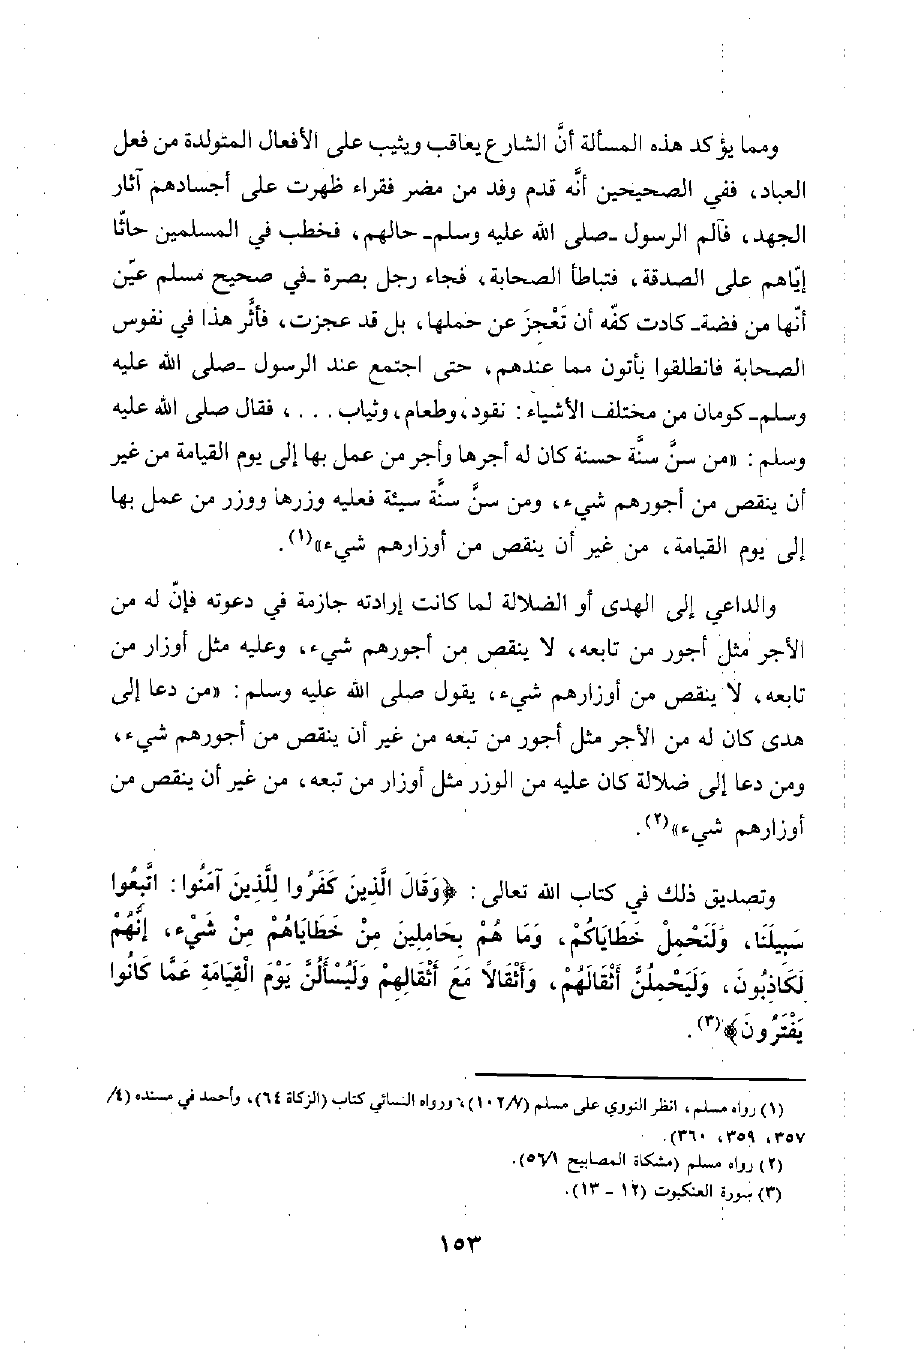 ومما يؤكد هذه المسألة أنَّ الشارع يعاقب ويثيب على الأفعال المتولدة من فعل
العباد، ففي الصحيحين أنَّه قدم وفد من مضر فقراء ظهرت على أجسادهم آثار
الجهد، فآلم الرسول -صلى الله عليه وسلم- حالهم، فخطب في المسلمين حاثّا
إيّاهم على الصدقة، فتباطأ الصحابة، فجاء رجل بصرة -في صحيح مسلم عيّن
أنّها من فضة- كادت كفّه أن تَعْجزَ عن حملها، بل قد عجزت، فأثَّر هذا في نفوس
الصحابة فانطلقوا يأتون مما عندهم، حتى اجتمع عند الرسول -صلى الله عليه
وسلم- كومان من مختلف الأشياء: نقود، وطعام، وثياب . . . ، فقال صلى الله عليه
وسلم: «من سنَّ سنَّة حسنة كان له أجرها وأجر من عمل بها إلى يوم القيامة من غير
أن ينقص من أجورهم شيء، ومن سنَّ سنَّة سيئة فعليه وزرها ووزر من عمل بها
إلى يوم القيامة، من غير أن ينقص من أوزارهم شيء»(١).
والداعي إلى الهدى أو الضلالة لما كانت إرادته جازمة في دعوته فإنّ له من
الأجر مثل أجور من تابعه، لا ينقص من أجورهم شيء، وعليه مثل أوزار من
تابعه، لا ينقص من أوزارهم شيء، يقول صلى الله عليه وسلم: «من دعا إلى
هدى كان له من الأجر مثل أجور من تبعه من غير أن ينقص من أجورهم شيء،
ومن دعا إلى ضلالة كان عليه من الوزر مثل أوزار من تبعه، من غير أن ينقص من
أوزارهم شيء»(٢).
وتصديق ذلك في كتاب الله تعالى: ﴿وَقَالَ الَّذِينَ كَفَرُوا لِلَّذِينَ آمَنُوا: اتَّبِعُوا
سَبِيلَنَا، وَلَنَحْمِلْ خَطَايَاكُمْ، وَمَا هُمْ بِحَامِلِينَ مِنْ خَطَايَاهُمْ مِنْ شَيْءٍ، إنَّهُمْ
لَكَاذِبُونَ، وَلَيَحْمِلُنَّ أَثْقَالَهُمْ، وَأَثْقَالاً مَعَ أَثْقَالِهِمْ وَلَيُسْأَلُنَّ يَوْمَ الْقِيَامَةِ عَمَّا كَانُوا
يَفْتَرُونَ﴾(٣).
(١) رواه مسلم، انظر النووي على مسلم (١٠٢/٧)، ورواه النسائي كتاب (الزكاة ٦٤)، وأحمد في مسنده (٤/
٣٥٧، ٣٥٩، ٣٦٠).
(٢) رواه مسلم (مشكاة المصابيح ٥٦/١).
(٣) سورة العنكبوت (١٢ - ١٣).
١٥٣